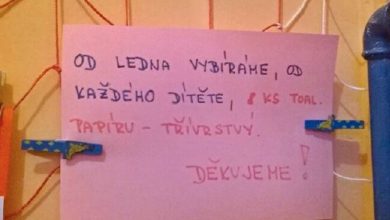 OD LEDNA VYBÍRÁME, OD
KAŽDÉHO DÍTĚTE, 8 KS TOAL.
PAPÍRU - TŘÍVRSTVÝ.
DĚKUJEME!